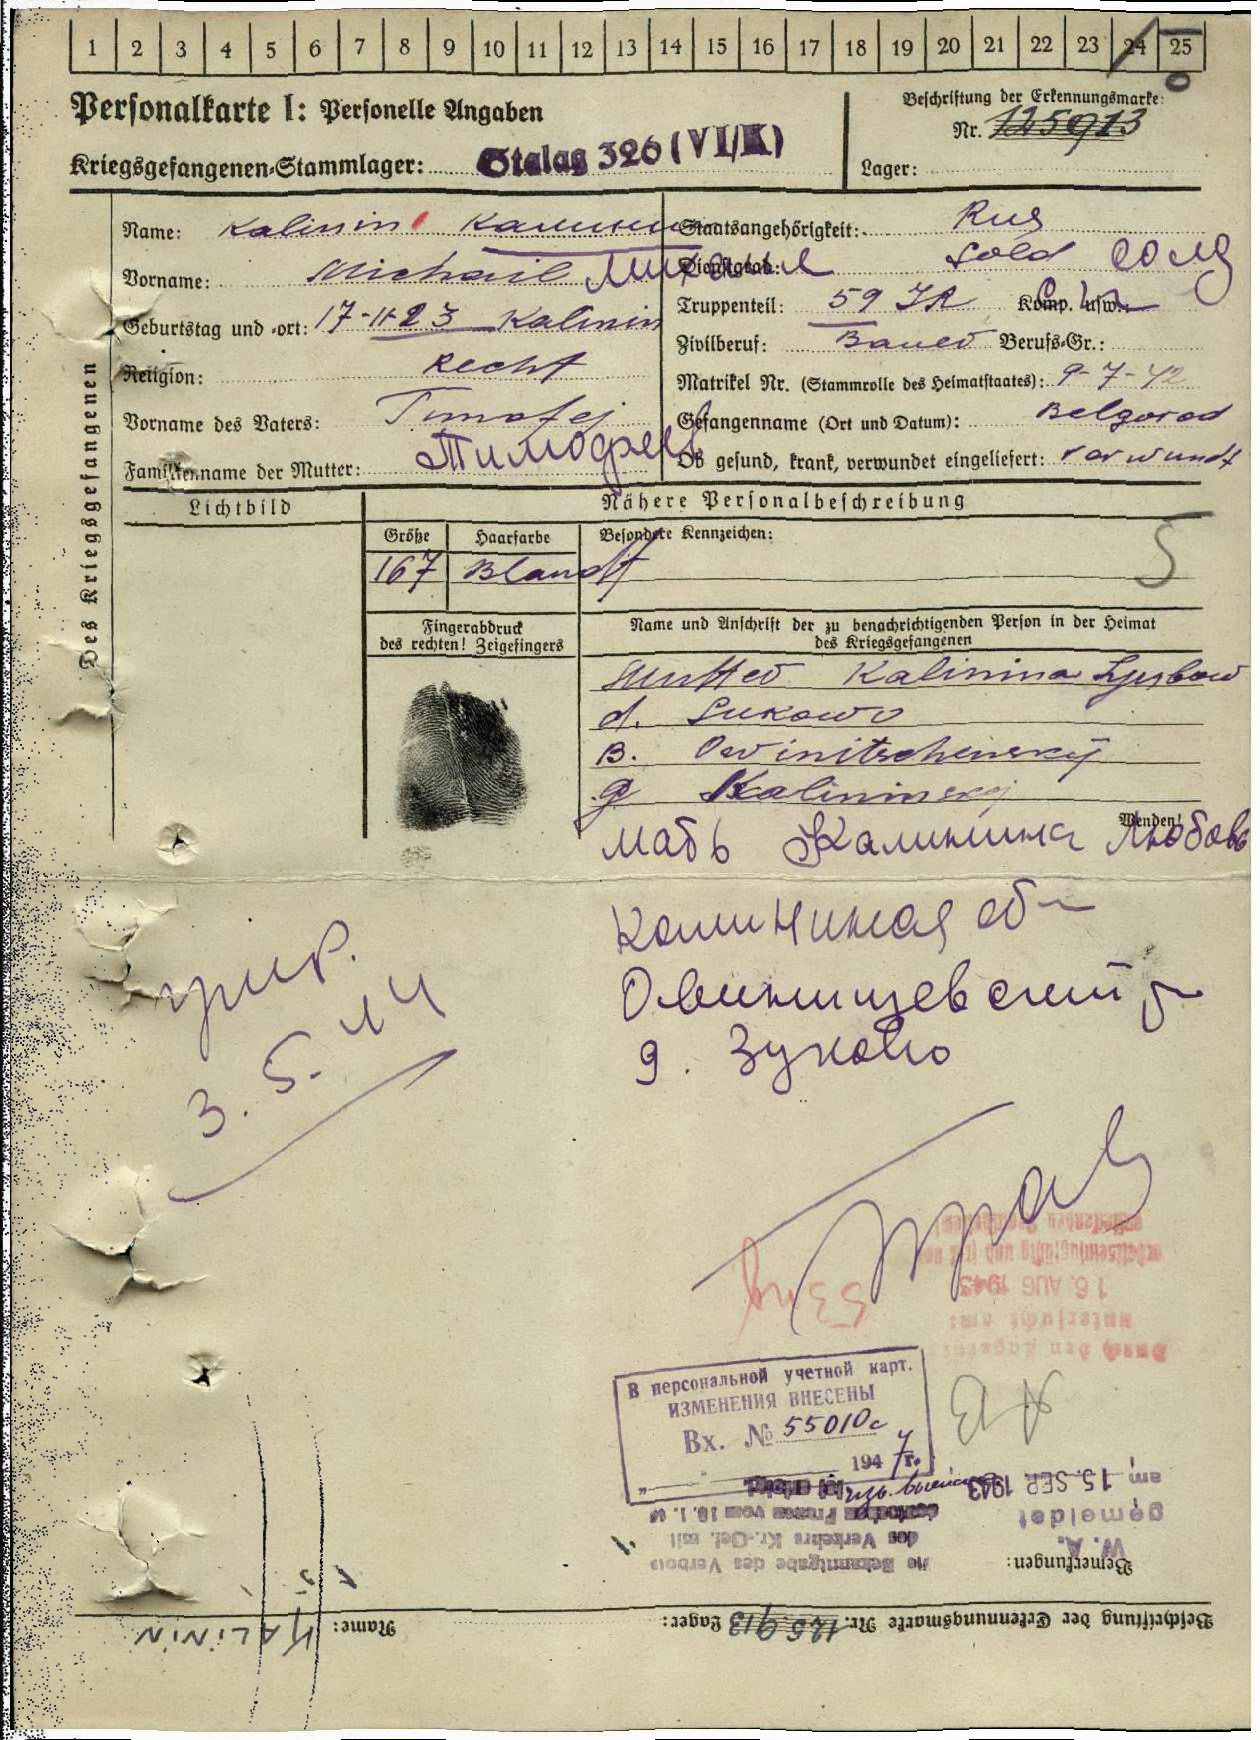 1 2 3 4 5 6 7 8 9 10 11 12 13 14 15 16 17 18 19 20 21 22 23 24 25
Personalkarte I: Personelle Angaben
Kriegsgefangenen-Stammlager: Stalag 326 (VI/K)
Beschriftung der Erkennungsmarke:
Nr. 125913
Lager:
Des Kriegsgefangenen
Name: Kalinin Калинин
Vorname: Michail Михаил
Geburtstag und -ort: 17-11-23 Kalinin
Religion: Recht
Vorname des Vaters: Timofej
Тимофей
Familienname der Mutter:
Staatsangehörigkeit: Rus
Dienstgrad: Sold солд
Truppenteil: 59 IR Komp. usw.:
Zivilberuf: Bauer Berufs-Gr.:
Matrikel Nr. (Stammrolle des Heimatstaates): 9-7-42
Gefangenname (Ort und Datum): Belgorod
Ob gesund, krank, verwundet eingeliefert: verwundt
Lichtbild
Nähere Personalbeschreibung
Größe Haarfarbe Besondere Kennzeichen:
167 Blandt
5
Fingerabdruck
des rechten! Zeigefingers
Name und Anschrift der zu benachrichtigenden Person in der Heimat
des Kriegsgefangenen
Mutter Kalinina Ljubow
d. Sukowo
B. Owinitschenskij
g Kalininskij
Wenden!
мать Калинина Любовь
Калининская об
Овинищевский р
д. Зуково
3. 5. 44
16. AUG 1943
В персональной учетной карт.
ИЗМЕНЕНИЯ ВНЕСЕНЫ
Вх. № 55010с
" 1947г.
Die Bekanntgabe des Verbots
des Verkehrs Kr.-Gef. mit
deutschen Frauen vom 18. 1.
ist erfolgt.
Bemerkungen:
W. A.
gemeldet
am 15. SEP. 1943
Beschriftung der Erkennungsmarke Nr. 125913 Lager:
Name: KALININ